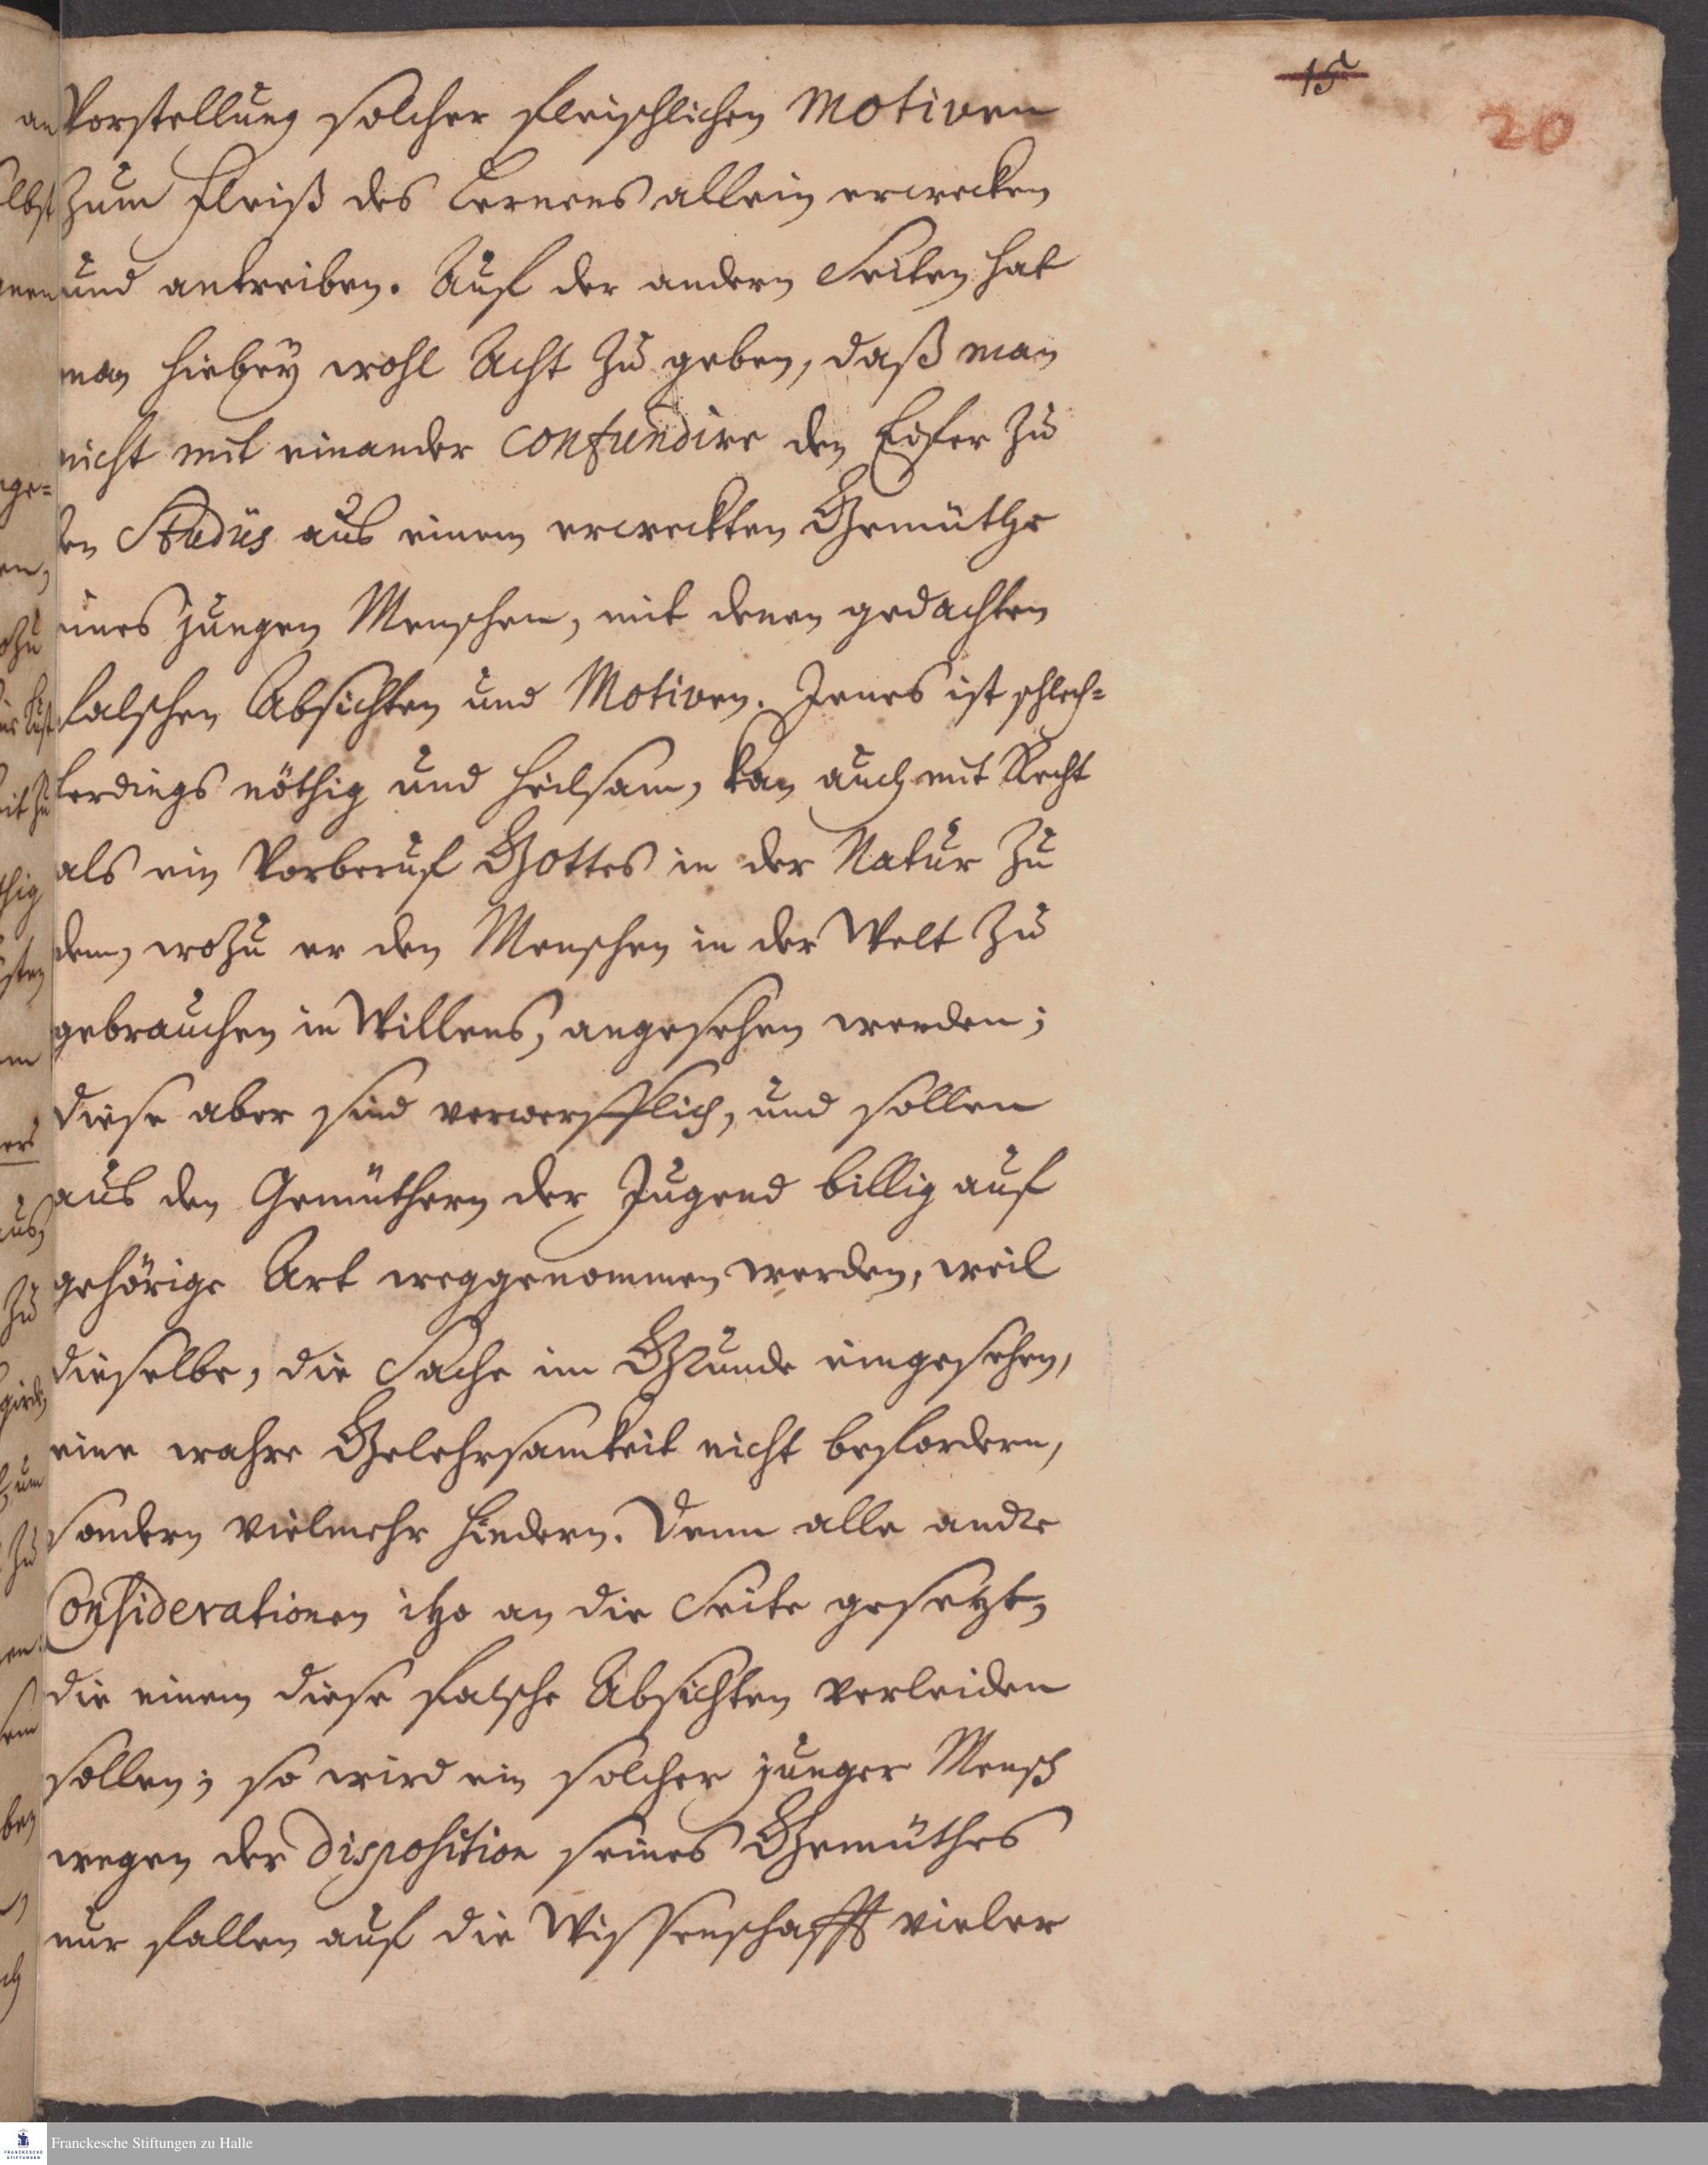 15
20
Vorstellung solcher fleischlichen Motiven
zum Fleiß des Lernens allein erwecken
und antreiben. Auf der andern Seiten hat
man hiebey wohl Acht zu geben, daß man
nicht mit einander confundire den Eifer zu
den Studiis aus einem erweckten Gemüthe
eines jungen Menschen, mit denen gedachten
falschen Absichten und Motiven. Jenes ist schlech=
terdings nöthig und heilsam, kan auch mit Recht
als ein Vorberuf Gottes in der Natur zu
dem, wozu er den Menschen in der Welt zu
gebrauchen in Willens, angesehen werden;
diese aber sind verwerfflich, und sollen
aus den Gemüthern der Jugend billig auf
gehörige Art weggenommen werden, weil
dieselbe, die Sache im Grunde eingesehen,
eine wahre Gelehrsamkeit nicht befordern,
sondern vielmehr hindern. Denn alle andre
Considerationen itzo an die Seite gesetzt,
die einem diese falsche Absichten verleiden
sollen; so wird ein solcher junger Mensch
wegen der Disposition seines Gemüthes
nur fallen auf die Wissenschafft vieler
Franckesche Stiftungen zu Halle